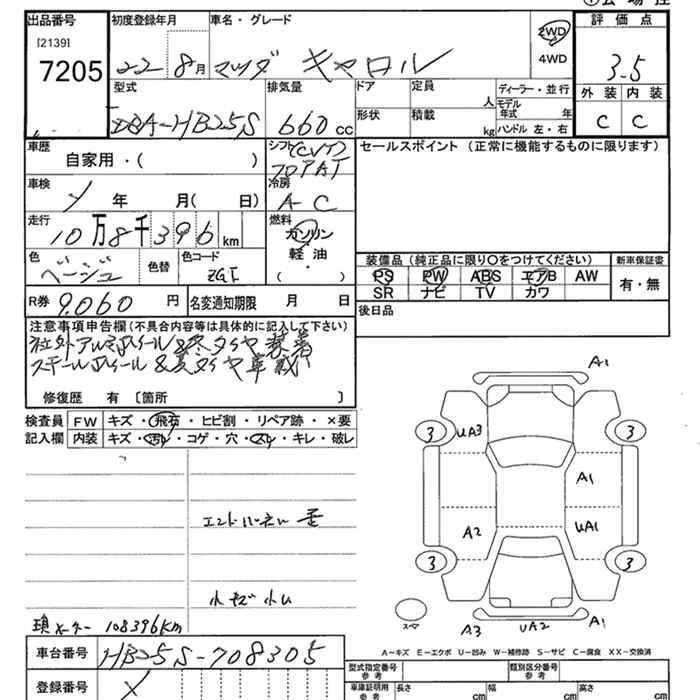 出品番号 初度登録年月 車名・グレード 2WD 評価点
[2139]
7205 22 8月 マツダ キャロル 4WD 3.5
型式 排気量 ドア 定員 人 ディーラー・並行 外装 内装
DBA-HB25S 660cc 形状 積載 kg モデル年式 年 C C
ハンドル 左・右
車歴 シフト(CVT) セールスポイント (正常に機能するものに限ります)
自家用・( ) フロアAT
車検 年 月( 日) 冷房 A-C
走行 10万8千396km 燃料 ガソリン
軽油
・
( )
色 色替 色コード 装備品 (純正品に限り○をつけてください) 新車保証書
ベージュ ZGT PS PW ABS エアB AW 有・無
SR ナビ TV カワ
R券 9,060円 名変通知期限 月 日 後日品
注意事項申告欄(不具合内容等は具体的に記入して下さい)
社外アルミホイール&冬タイヤ装着
スチールホイール&夏タイヤ車載
修復歴 有 〔箇所 〕
検査員 FW キズ・飛石・ヒビ割・リペア跡・×要
記入欄 内装 キズ・汚れ・コゲ・穴・スレ・キレ・破レ
A1
3 UA3 3
A1
A2 UA1
3 3
スペア A3 UA2 A1
エンドパネル 歪
小キズ 小U
現メーター 108396km
A-キズ E-エクボ U-凹み W-補修跡 S-サビ C-腐食 XX-交換済
車台番号 HB25S-708305 型式指定番号 参考 類別区分番号 参考
登録番号 車庫証明用 参考 長さ cm 幅 cm 高さ cm